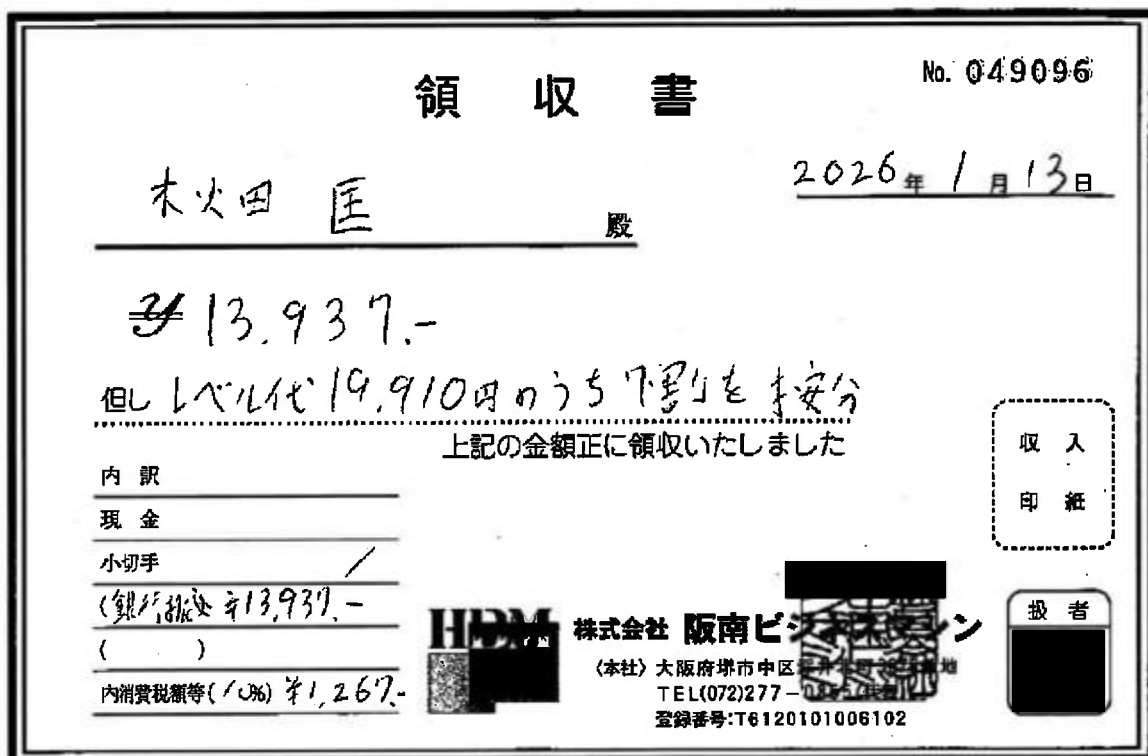 No. 049096
領収書
2026年1月13日
木火田 匡 殿
¥13,937.-
但し レベル代19,910円のうち7割を按分
上記の金額正に領収いたしました
収入
印紙
内訳
現金
小切手 /
(銀行振込 ¥13,937.-
( )
内消費税額等(10%) ¥1,267.-
HDM
株式会社 阪南ビジ ン
〈本社〉大阪府堺市中区 地
TEL(072)277-
登録番号:T6120101006102
扱者